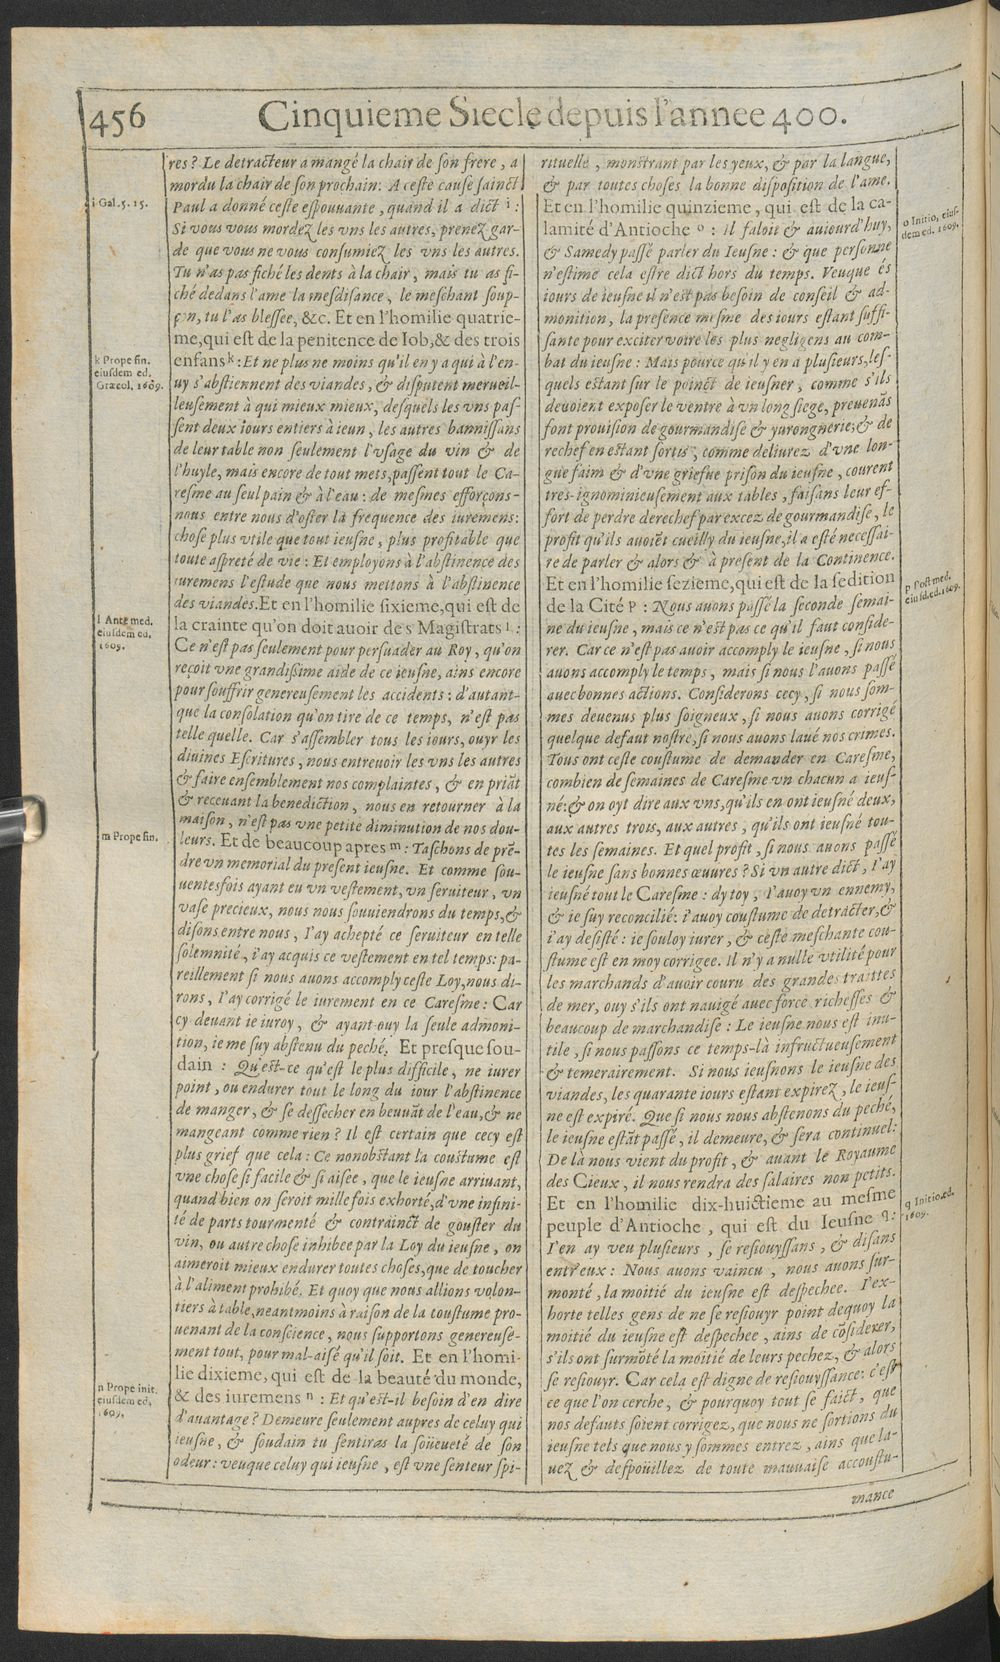 456
Cinquieme Siecle depuis l'annee 400.
res? Le detracteur a mangé la chair de son frere, a
mordu la chair de son prochain: A ceste cause sainct
Paul a donné ceste espouuante, quand il a dict i :
Si vous vous mordez les vns les autres, prenez gar-
de que vous ne vous consumiez les vns les autres.
Tu n'as pas fiché les dents à la chair, mais tu as fi-
ché dedans l'ame la mesdisance, le meschant soup-
çon, tu l'as blessee, &c. Et en l'homilie quatrie-
me, qui est de la penitence de Iob, & des trois
enfans k : Et ne plus ne moins qu'il en y a qui à l'en-
uy s'abstiennent des viandes, & disputent merueil-
leusement à qui mieux mieux, desquels les vns pas-
sent deux iours entiers à ieun, les autres bannissans
de leur table non seulement l'vsage du vin & de
l'huyle, mais encore de tout mets, passent tout le Ca-
resme au seul pain & à l'eau : de mesmes efforçons-
nous entre nous d'oster la frequence des iuremens:
chose plus vtile que tout ieusne, plus profitable que
toute aspreté de vie : Et employons à l'abstinence des
iuremens l'estude que nous mettons à l'abstinence
des viandes. Et en l'homilie sixieme, qui est de
la crainte qu'on doit auoir des Magistrats l :
Ce n'est pas seulement pour persuader au Roy, qu'on
reçoit vne grandissime aide de ce ieusne, ains encore
pour souffrir genereusement les accidents : d'autant-
que la consolation qu'on tire de ce temps, n'est pas
telle quelle. Car s'assembler tous les iours, ouyr les
diuines Escritures, nous entreuoir les vns les autres
& faire ensemblement nos complaintes, & en priãt
& receuant la benediction, nous en retourner à la
maison, n'est pas vne petite diminution de nos dou-
leurs. Et de beaucoup apres m : Taschons de prẽ-
dre vn memorial du present ieusne. Et comme sou-
uentesfois ayant eu vn vestement, vn seruiteur, vn
vase precieux, nous nous souuiendrons du temps, &
disons entre nous, I'ay achepté ce seruiteur en telle
solemnité, i'ay acquis ce vestement en tel temps: pa-
reillement si nous auons accomply ceste Loy, nous di-
rons, I'ay corrigé le iurement en ce Caresme: Car
cy deuant ie iuroy, & ayant ouy la seule admoni-
tion, ie me suy abstenu du peché. Et presque sou-
dain : Qu'est-ce qu'est le plus difficile, ne iurer
point, ou endurer tout le long du iour l'abstinence
de manger, & se dessecher en beuuãt de l'eau, & ne
mangeant comme rien? Il est certain que cecy est
plus grief que cela: Ce nonobstant la coustume est
vne chose si facile & si aisee, que le ieusne arriuant,
quand bien on seroit mille fois exhorté, d'vne infini-
té de parts tourmenté & contrainct de gouster du
vin, ou autre chose inhibee par la Loy du ieusne, on
aimeroit mieux endurer toutes choses, que de toucher
à l'aliment prohibé. Et quoy que nous allions volon-
tiers à table, neantmoins à raison de la coustume pro-
uenant de la conscience, nous supportons genereuse-
ment tout, pour mal-aisé qu'il soit. Et en l'homi-
lie dixieme, qui est de la beauté du monde,
& des iuremens n : Et qu'est-il besoin d'en dire
d'auantage? Demeure seulement aupres de celuy qui
ieusne, & soudain tu sentiras la soüeueté de son
odeur: veuque celuy qui ieusne, est vne senteur spi-
i Gal. 5. 15.
k Prope fin.
eiusdem ed.
Græcol. 1609.
l Ante med.
eiusdem ed.
1609.
m Prope fin.
n Prope init.
eiusdem ed.
1609.
rituelle, monstrant par les yeux, & par la langue,
& par toutes choses la bonne disposition de l'ame.
Et en l'homilie quinzieme, qui est de la ca-
lamité d'Antioche o : il faloit & auiourd'huy,
& Samedy passé parler du Ieusne : & que personne
n'estime cela estre dict hors du temps. Veuque és
iours de ieusne il n'est pas besoin de conseil & ad-
monition, la presence mesme des iours estant suffi-
sante pour exciter voire les plus negligens au com-
bat du ieusne: Mais pource qu'il y en a plusieurs, les-
quels estant sur le poinct de ieusner, comme s'ils
deuoient exposer le ventre à vn long siege, preuenãs
font prouision de gourmandise & yurongnerie; & de
rechef en estant sortis, comme deliurez d'vne lon-
gue faim & d'vne griefue prison du ieusne, courent
tres-ignominieusement aux tables, faisans leur ef-
fort de perdre derechef par excez de gourmandise, le
profit qu'ils auoiẽt cueilly du ieusne, il a esté necessai-
re de parler & alors & à present de la Continence.
Et en l'homilie sezieme, qui est de la sedition
de la Cité p : Nous auons passé la seconde semai-
ne du ieusne, mais ce n'est pas ce qu'il faut conside-
rer. Car ce n'est pas auoir accomply le ieusne, si nous
auons accomply le temps, mais si nous l'auons passé
auec bonnes actions. Considerons cecy, si nous som-
mes deuenus plus soigneux, si nous auons corrigé
quelque defaut nostre, si nous auons laué nos crimes.
Tous ont ceste coustume de demander en Caresme,
combien de semaines de Caresme vn chacun a ieus-
né: & on oyt dire aux vns, qu'ils en ont ieusné deux,
aux autres trois, aux autres, qu'ils ont ieusné tou-
tes les semaines. Et quel profit, si nous auons passé
le ieusne sans bonnes œuures? Si vn autre dict, I'ay
ieusné tout le Caresme : dy toy, I'auoy vn ennemy,
& ie suy reconcilié: i'auoy coustume de detracter, &
i'ay desisté : ie souloy iurer, & ceste meschante cou-
stume est en moy corrigee. Il n'y a nulle vtilité pour
les marchands d'auoir couru des grandes traittes
de mer, ouy s'ils ont nauigé auec force richesses &
beaucoup de marchandise : Le ieusne nous est inu-
tile, si nous passons ce temps-là infructueusement
& temerairement. Si nous ieusnons le ieusne des
viandes, les quarante iours estant expirez, le ieus-
ne est expiré. Que si nous nous abstenons du peché,
le ieusne estãt passé, il demeure, & sera continuel:
De là nous vient du profit, & auant le Royaume
des Cieux, il nous rendra des salaires non petits.
Et en l'homilie dix-huictieme au mesme
peuple d'Antioche, qui est du Ieusne q :
I'en ay veu plusieurs, se resiouyssans, & disans
entr'eux : Nous auons vaincu, nous auons sur-
monté, la moitié du ieusne est despechee. I'ex-
horte telles gens de ne se resiouyr point dequoy la
moitié du ieusne est despechee, ains de cõsiderer,
s'ils ont surmõté la moitié de leurs pechez, & alors
se resiouyr. Car cela est digne de resiouyssance: c'est
ce que l'on cerche, & pourquoy tout se faict, que
nos defauts soient corrigez, que nous ne sortions du
ieusne tels que nous y sommes entrez, ains que la-
uez & despoüillez de toute mauuaise accoustu-
mance
o Initio, eius-
dem ed. 1609.
p Post med.
eiusd. ed. 1609.
q Initio. ed.
1609.